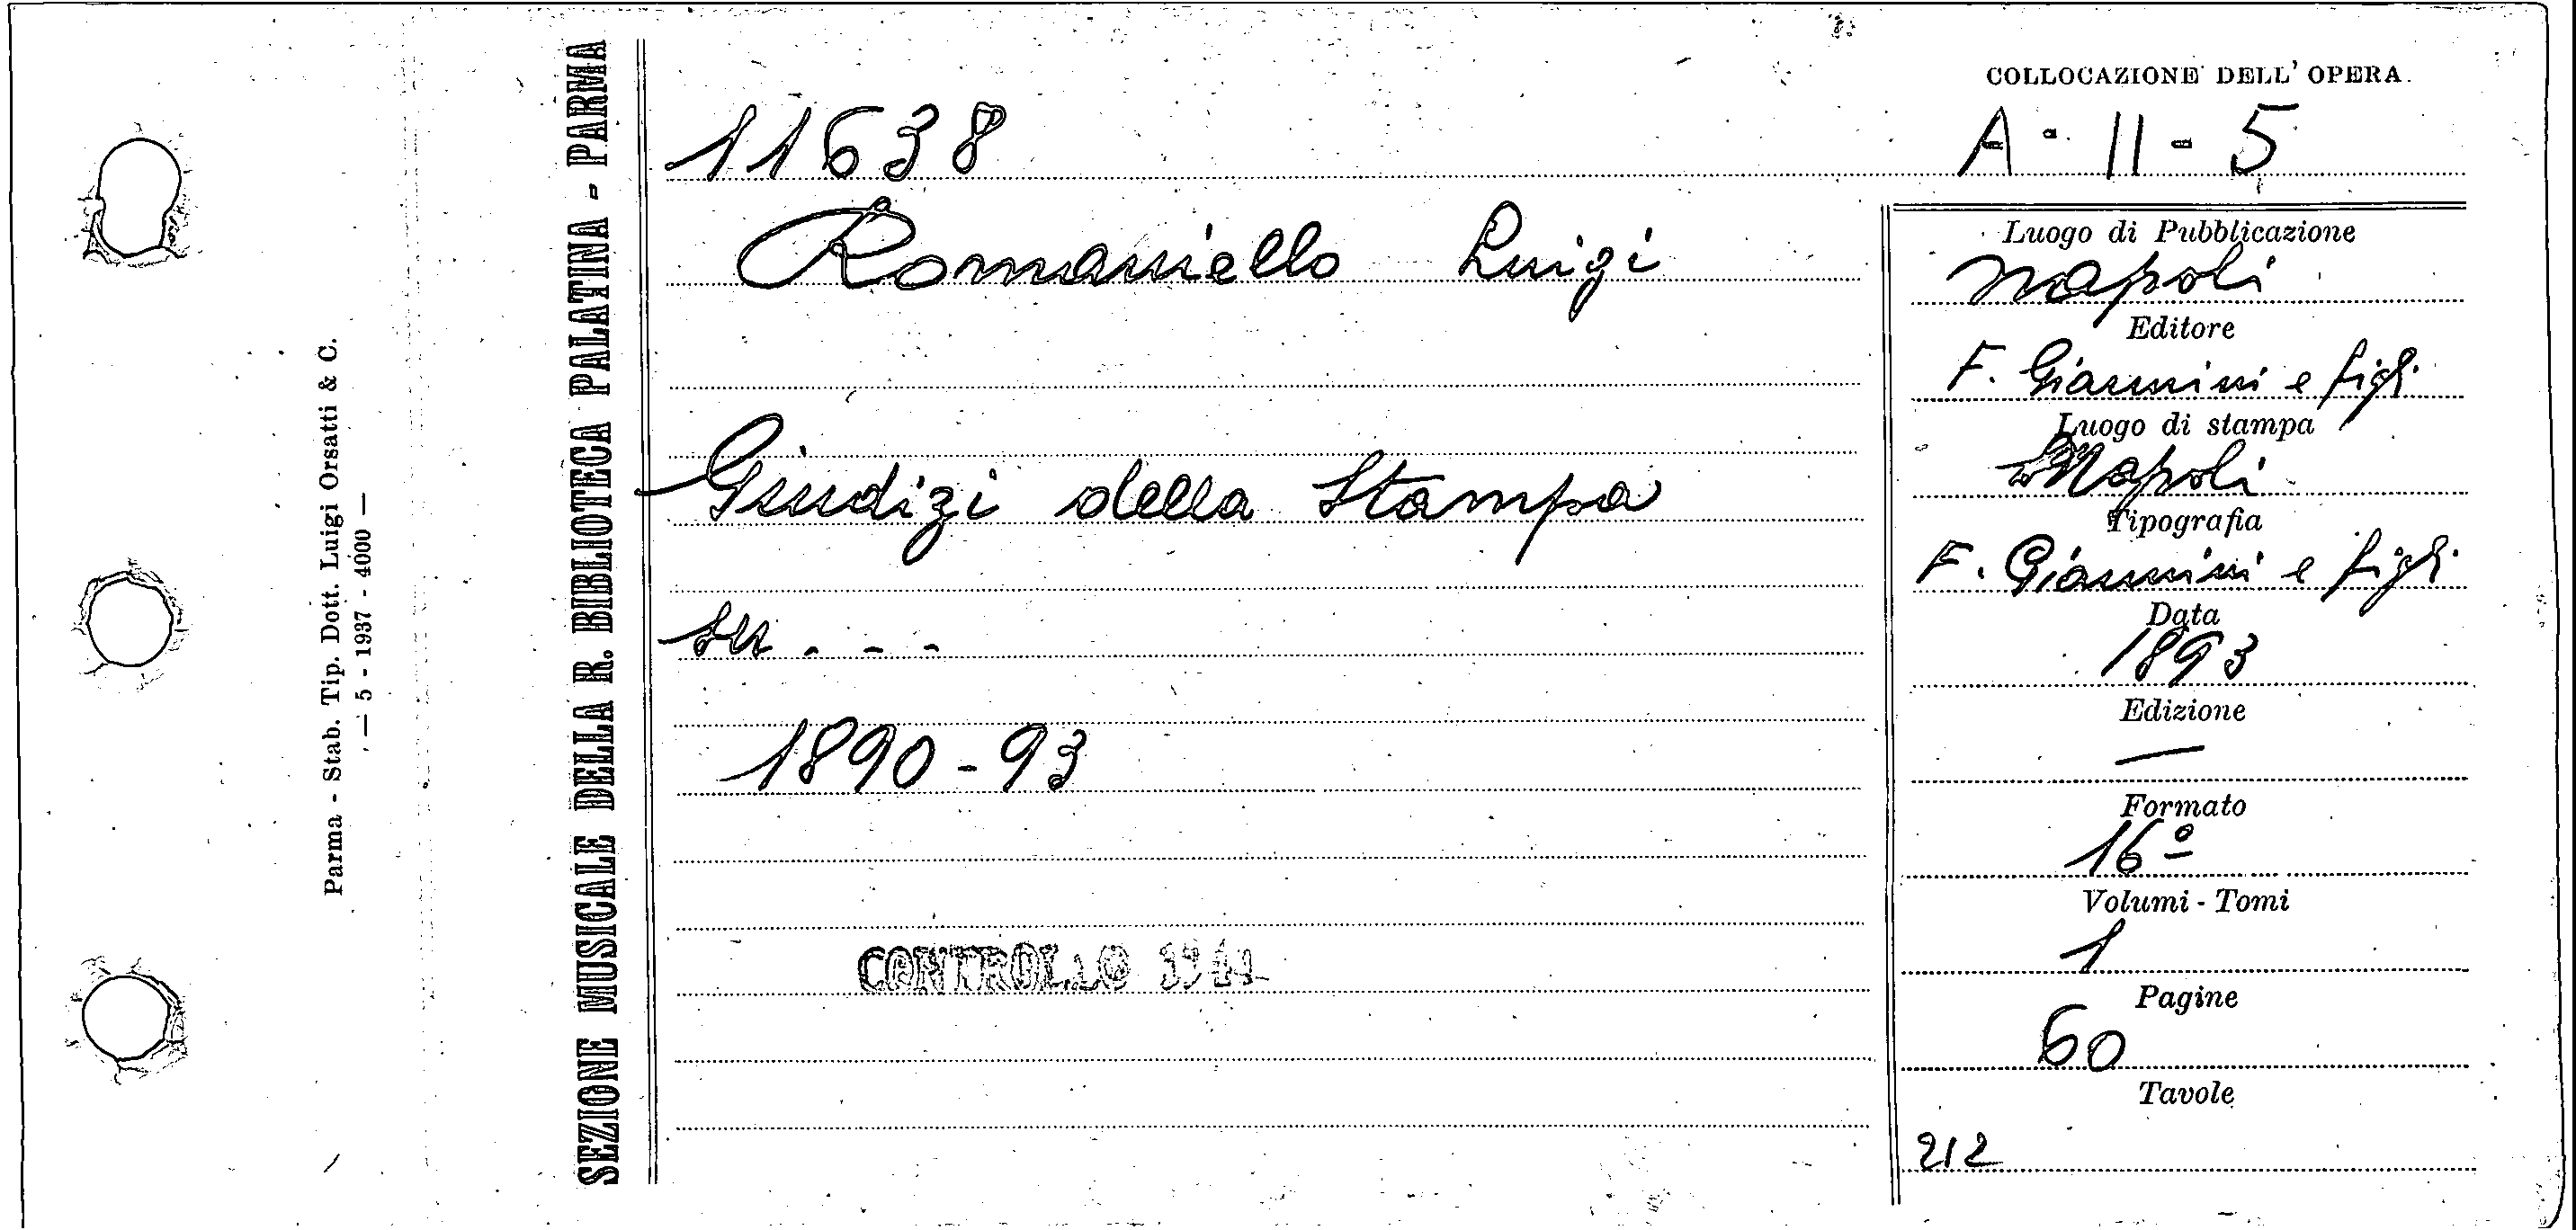 Parma - Stab. Tip. Dott. Luigi Orsatti & C.
— 5 - 1937 - 4000 —
SEZIONE MUSICALE DELLA R. BIBLIOTECA PALATINA - PARMA
11638
Romaniello Luigi
Giudizi della Stampa
su . - -
1890-93
CONTROLLO
COLLOCAZIONE DELL' OPERA
A - II - 5
Luogo di Pubblicazione
Napoli
Editore
F. Giannini e figli
Luogo di stampa
Napoli
Tipografia
F. Giannini e figli
Data
1893
Edizione
—
Formato
16º
Volumi - Tomi
1
Pagine
60
Tavole
212